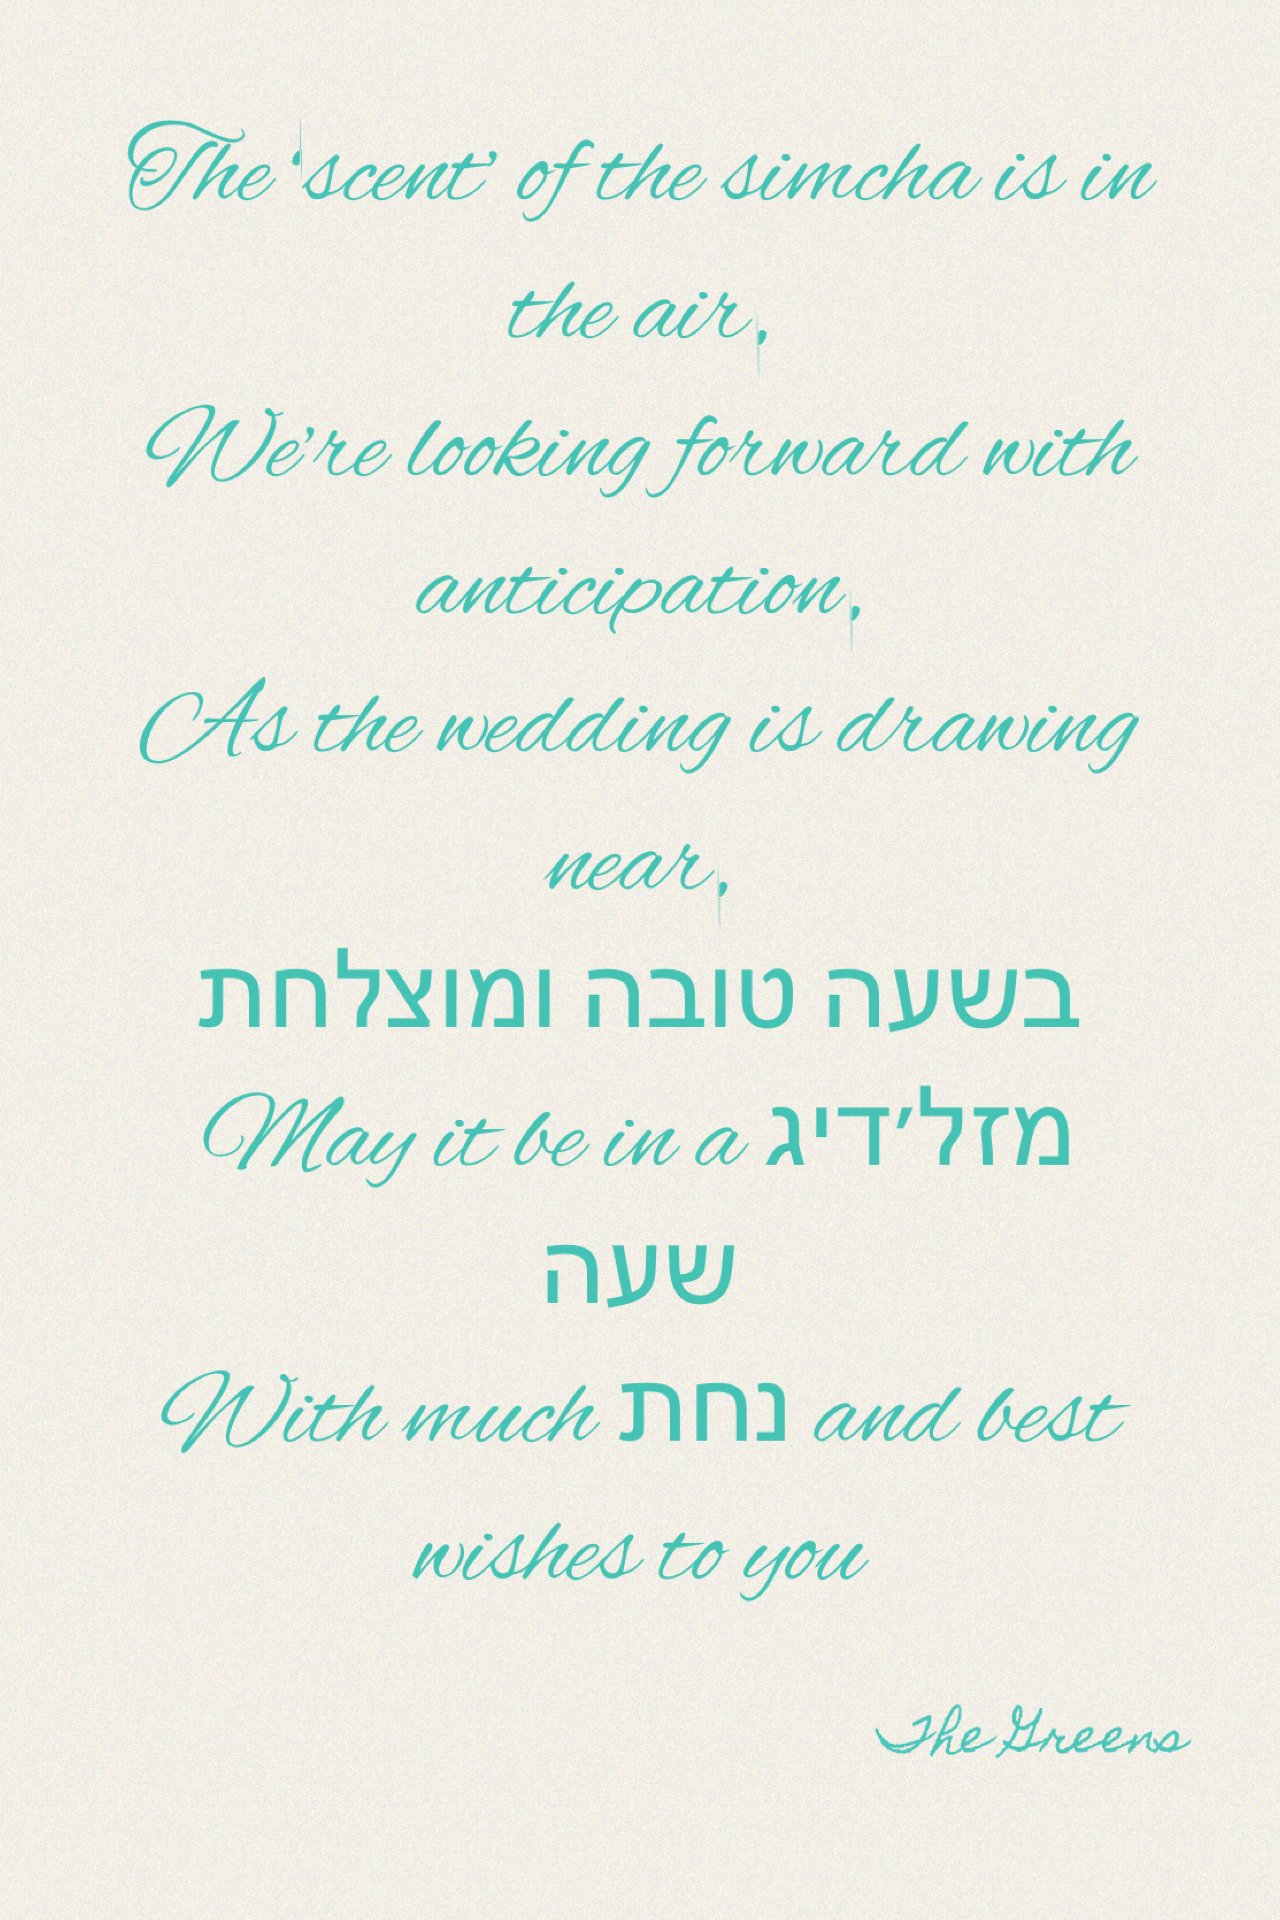 The ‘scent’ of the simcha is in
the air,
We’re looking forward with
anticipation,
As the wedding is drawing
near,
בשעה טובה ומוצלחת
May it be in a מזל’דיג
שעה
With much נחת and best
wishes to you
The Greens